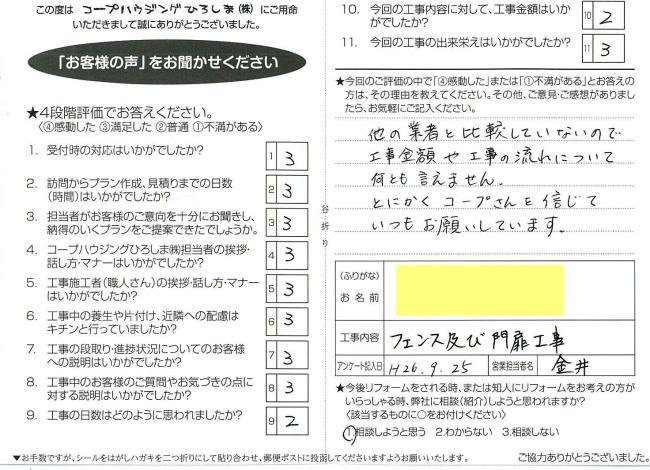 この度は コープハウジングひろしま(株) にご用命
いただきまして誠にありがとうございました。
「お客様の声」をお聞かせください
★4段階評価でお答えください。
〈④感動した ③満足した ②普通 ①不満がある〉
1. 受付時の対応はいかがでしたか?
1 3
2. 訪問からプラン作成、見積りまでの日数
(時間)はいかがでしたか?
2 3
3. 担当者がお客様のご意向を十分にお聞きし、
納得のいくプランをご提案できたでしょうか。
3 3
4. コープハウジングひろしま㈱担当者の挨拶・
話し方・マナーはいかがでしたか?
4 3
5. 工事施工者(職人さん)の挨拶・話し方・マナー
はいかがでしたか?
5 3
6. 工事中の養生や片付け、近隣への配慮は
キチンと行っていましたか?
6 3
7. 工事の段取り・進捗状況についてのお客様
への説明はいかがでしたか?
7 3
8. 工事中のお客様のご質問やお気づきの点に
対する説明はいかがでしたか?
8 3
9. 工事の日数はどのように思われましたか?
9 2
谷折り
10. 今回の工事内容に対して、工事金額はいか
がでしたか?
10 2
11. 今回の工事の出来栄えはいかがでしたか?
11 3
★今回のご評価の中で「④感動した」または「①不満がある」とお答え
の方は、その理由を教えてください。その他、ご意見・ご感想がありまし
たら、お気軽にご記入ください。
他の業者と比較していないので
工事金額や工事の流れについて
何とも言えません。
とにかくコープさんを信じて
いつもお願いしています。
(ふりがな)
お名前
工事内容 フェンス及び門扉工事
アンケート記入日 H26.9.25 営業担当者名 金井
★今後リフォームをされる時、または知人にリフォームをお考えの方が
いらっしゃる時、弊社に相談(紹介)しようと思われますか?
〈該当するものに○をお付けください〉
1.相談しようと思う 2.わからない 3.相談しない
▼お手数ですが、シールをはがしハガキを二つ折りにして貼り合わせ、郵便ポストに投函してくださいますようお願いいたします。
ご協力ありがとうございました。